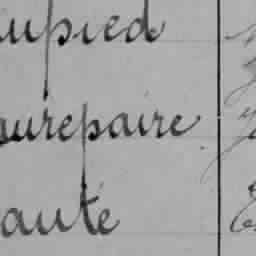 upied
aurepaire
auté